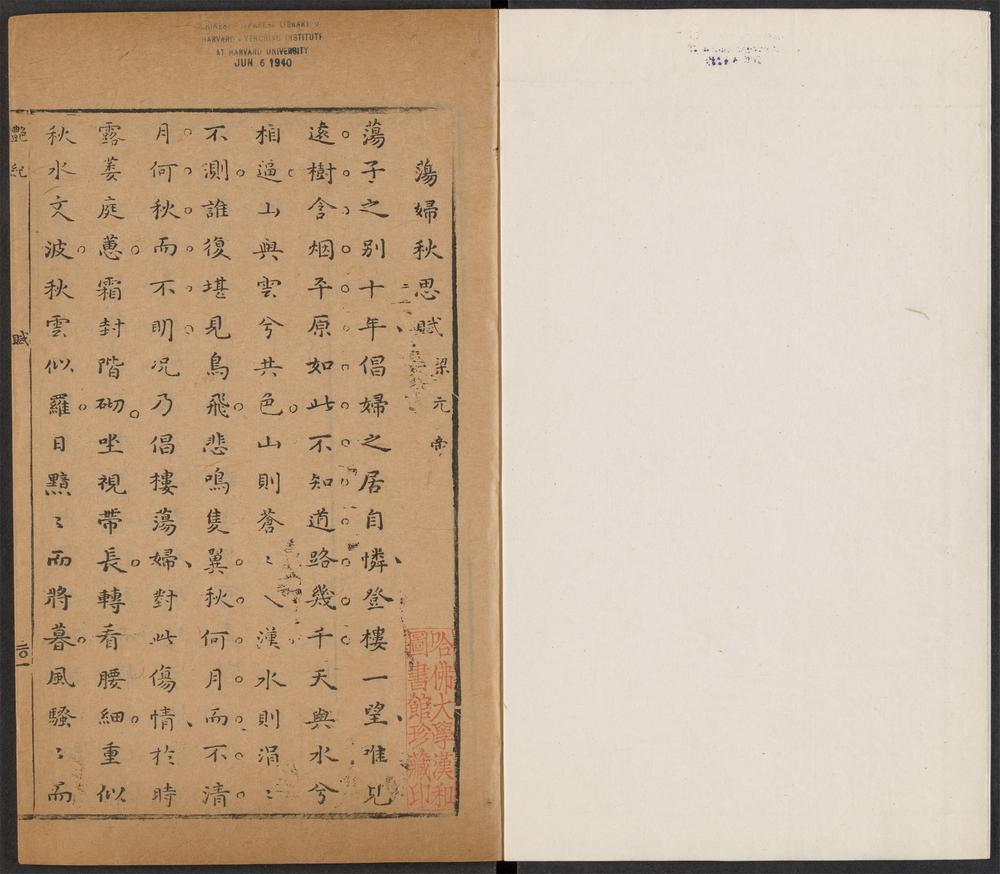 CHINESE-JAPANESE LIBRARY O
HARVARD-YENCHING INSTITUTE
AT HARVARD UNIVERSITY
JUN 6 1940
蕩婦秋思賦 梁元帝
蕩子之别十年倡婦之居自憐登樓一望唯見
遠樹含烟平原如此不知道路幾千天與水兮
相逼山與雲兮共色山則蒼〻入漢水則涓〻
不測誰復堪見鳥飛悲鳴隻翼秋何月而不清
月何秋而不明况乃倡樓蕩婦對此傷情於時
露萎庭蕙霜封階砌坐視帶長轉看腰細重似
秋水文波秋雲似羅日黯〻而將暮風騷〻而
艶紀
賦
二〇一
哈佛大學漢和
圖書館珍藏印